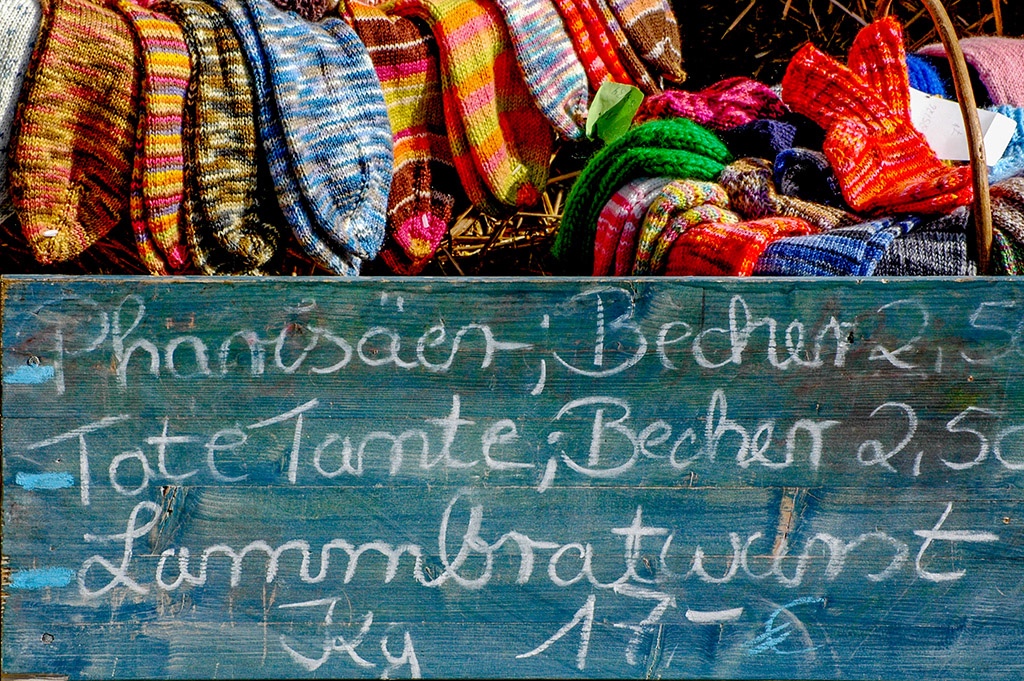 Pharisäer; Becher 2,50
Tote Tante; Becher 2,50
Lammbratwurst
Kg 17,- €